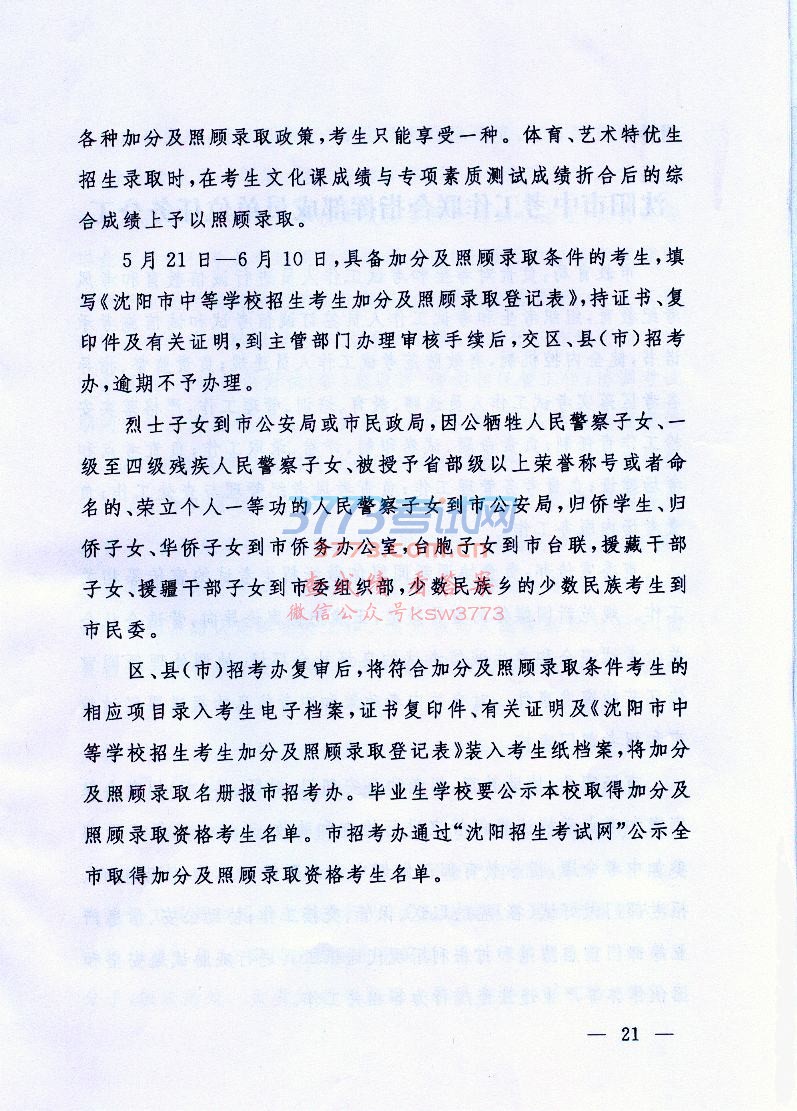 各种加分及照顾录取政策,考生只能享受一种。体育、艺术特优生
招生录取时,在考生文化课成绩与专项素质测试成绩折合后的综
合成绩上予以照顾录取。
5月21日—6月10日,具备加分及照顾录取条件的考生,填
写《沈阳市中等学校招生考生加分及照顾录取登记表》,持证书、复
印件及有关证明,到主管部门办理审核手续后,交区、县(市)招考
办,逾期不予办理。
烈士子女到市公安局或市民政局,因公牺牲人民警察子女、一
级至四级残疾人民警察子女、被授予省部级以上荣誉称号或者命
名的、荣立个人一等功的人民警察子女到市公安局,归侨学生、归
侨子女、华侨子女到市侨务办公室,台胞子女到市台联,援藏干部
子女、援疆干部子女到市委组织部,少数民族乡的少数民族考生到
市民委。
区、县(市)招考办复审后,将符合加分及照顾录取条件考生的
相应项目录入考生电子档案,证书复印件、有关证明及《沈阳市中
等学校招生考生加分及照顾录取登记表》装入考生纸档案,将加分
及照顾录取名册报市招考办。毕业生学校要公示本校取得加分及
照顾录取资格考生名单。市招考办通过“沈阳招生考试网”公示全
市取得加分及照顾录取资格考生名单。
3773考试网
3773.com.cn
查成绩 看答案
微信公众号ksw3773
— 21 —